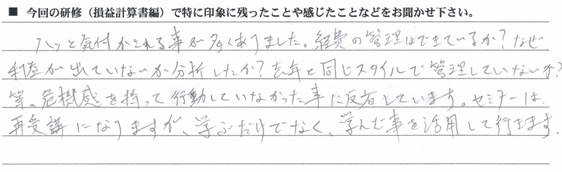 ■ 今回の研修（損益計算書編）で特に印象に残ったことや感じたことなどをお聞かせ下さい。
ハッと気付かされる事が多くありました。経費の管理はできているか？なぜ
利益が出ていないか分析したか？去年と同じスタイルで管理していないか？
等、危機感を持って行動していなかった事に反省しています。セミナーは
再受講になりますが、学ぶだけでなく、学んだ事を活用して行きます。